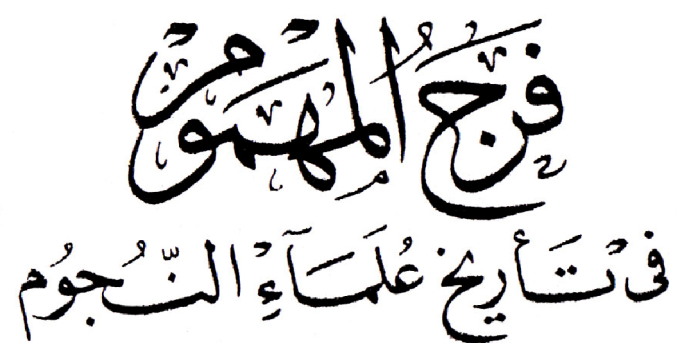 فَرَجُ الْمَهْمُومِ
فى تَأريخ عُلَمَآءِ النُّجُوم